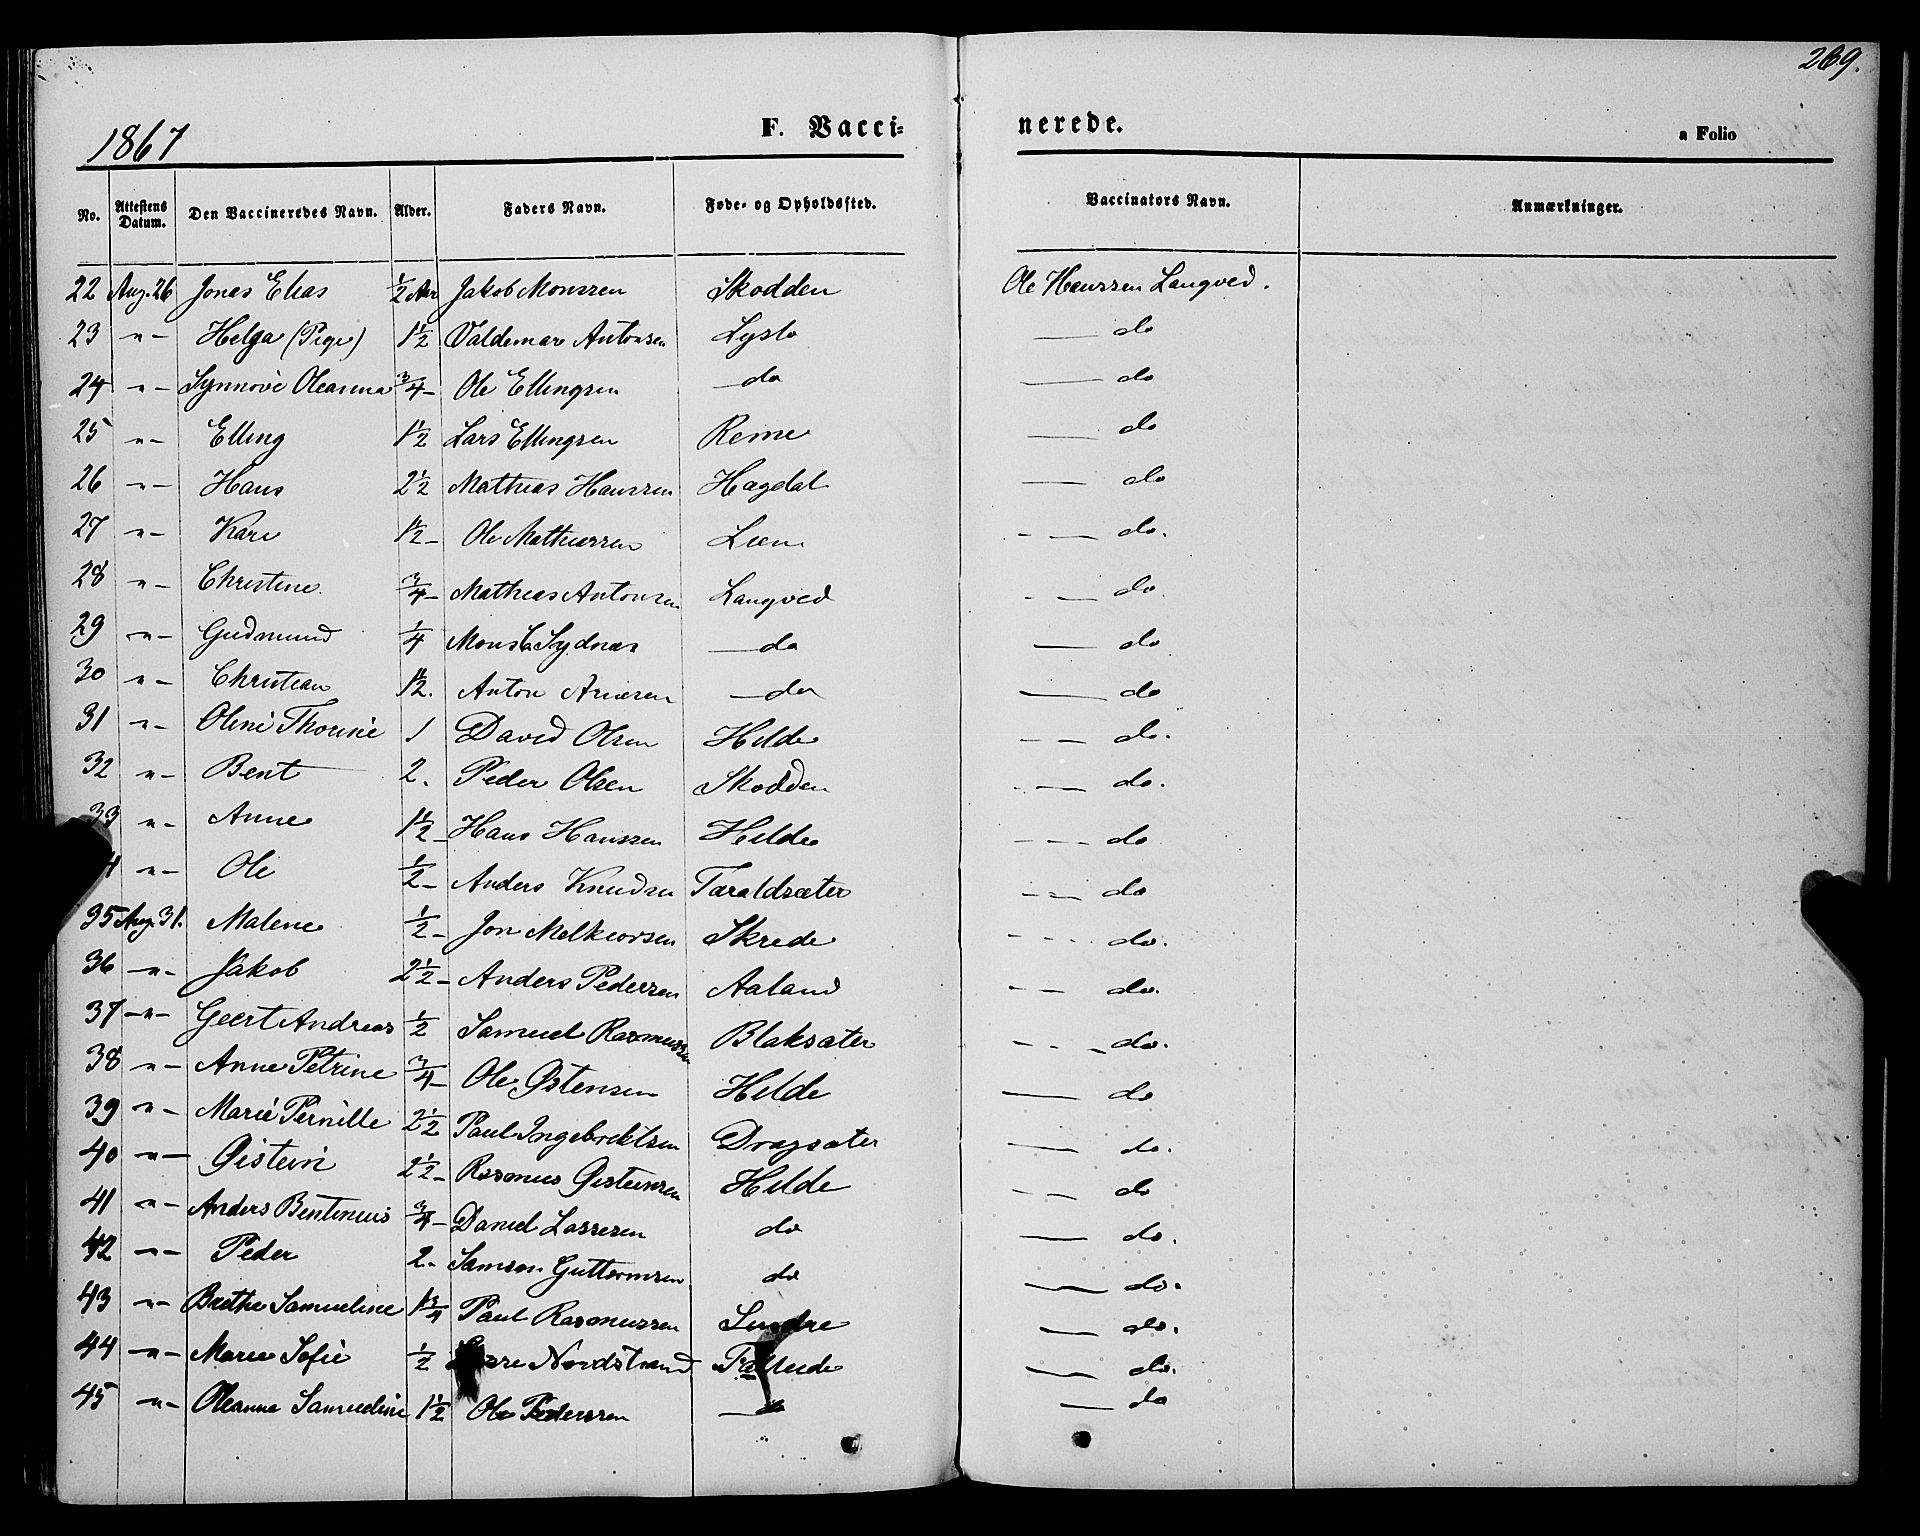 269.
1867 F. Vacci- nerede. a Folio
No. Attestens Datum. Den Vaccineredes Navn. Alder. Faders Navn. Føde- og Opholdssted. Vaccinators Navn. Anmærkninger.
22 Aug. 26 Jonas Elias ½ Aar Jakob Monssen Skodden Ole Hanssen Langved.
23 "- Helga (Pige) 1½ Valdemar Antonsen Lyslo — do
24 "- Synnøve Oleanna ¾- Ole Ellingsen — do — do
25 "- Elling 1½ Lars Ellingsen Reme — do
26 "- Hans 2½ Mathias Hanssen Hagdal — do
27 "- Kari 1½- Ole Mathiassen Leem - — do.
28 "- Christine ¾- Mathias Antonsen Langved - — do.
29 "- Gudmund ¼ Mons Sydnæs — do — do
30 "- Christian 1½. Anton — do — do
31 "- Oline Thorine 1 David Olsen Hilde - - do.
32 "- Bent 2. Peder Olsen Skodden - — do.
33 "- Anne 1½- Hans Hanssen Hilde - - - do
4 "- Ole ½- Anders Knudsen Taraldsæter - - — do
35 Aug. 31. Malene ½- Jon Melkiorsen Skrede - - - do.
36 -"- Jakob 2½- Anders Pederssen Aaland - - do.
37 -"- Geert Andreas ½ Samuel Rasmussen Blaksæter - - - do.
38 "- Anne Petrine ¾- Ole Østensen Hilde — do
39 "- Marie Pernille 2½ Paul Ingebrektsen Dragsæter — do.
40 "- Øistein 2½- Rasmus Øisteinsen Hilde - - do
41 "- Anders Bentinius ¾- Daniel Lassesen do — do.
42 -"- Peder 2- Samson Guttormsen do — do.
43 "- Brethe Samueline 1¾ Paul Rasmussen Sindre — do.
44 -"- Marie Sofie ½ Nordstrand — do.
45 -"- Oleanna Samueline 1½ Ole Pederssen — do